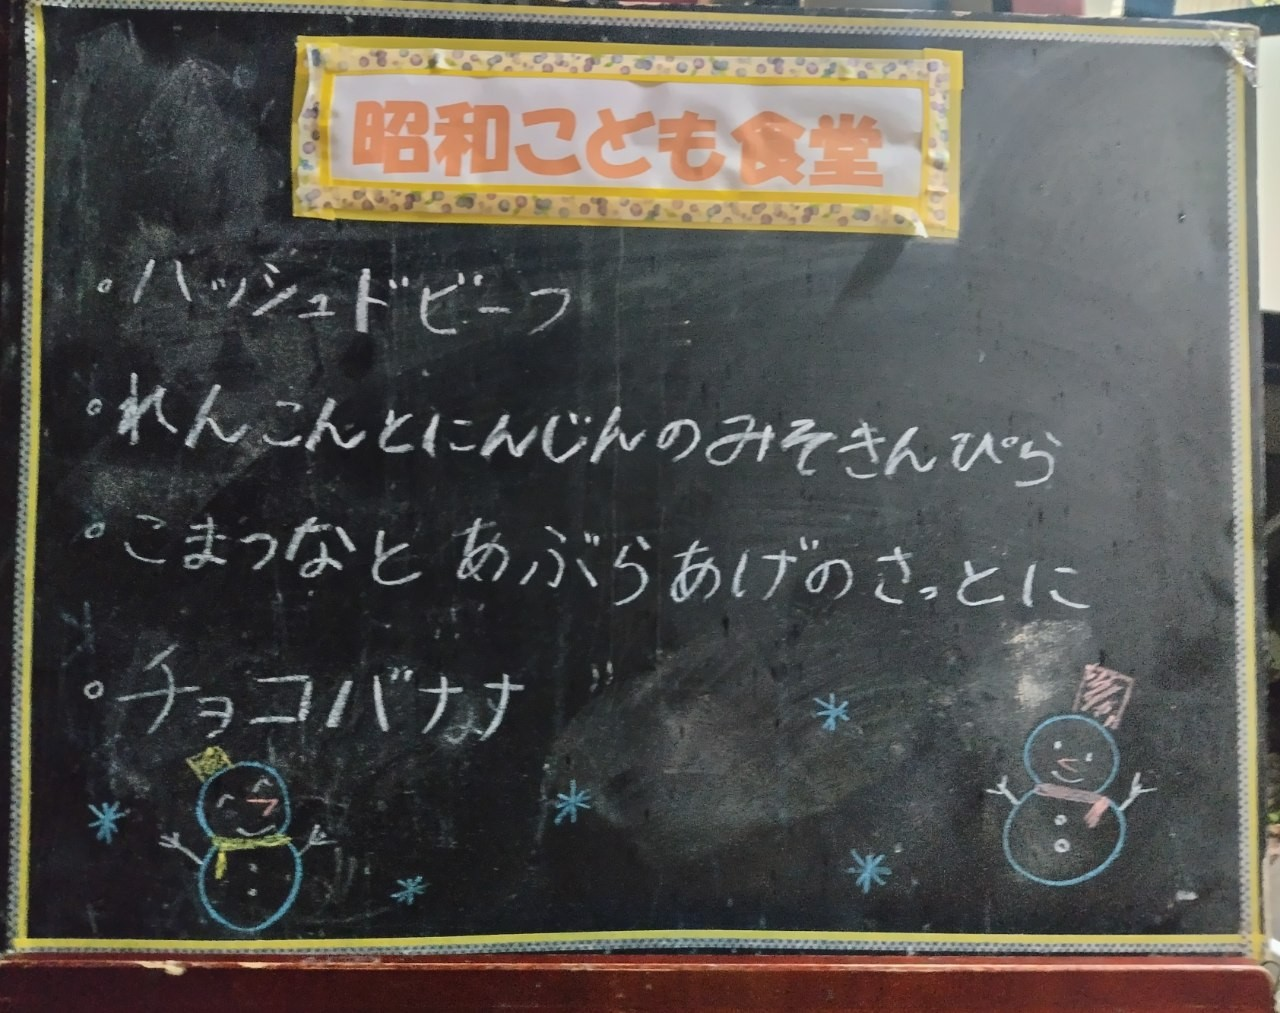 昭和こども食堂
・ハッシュドビーフ
・れんこんとにんじんのみそきんぴら
・こまつなとあぶらあげのさっとに
・チョコバナナ